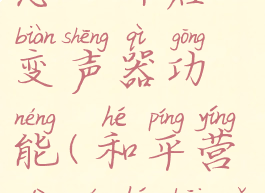 biàn shēng qì gōng
变声器功
néng hé píng yíng
能(和平营